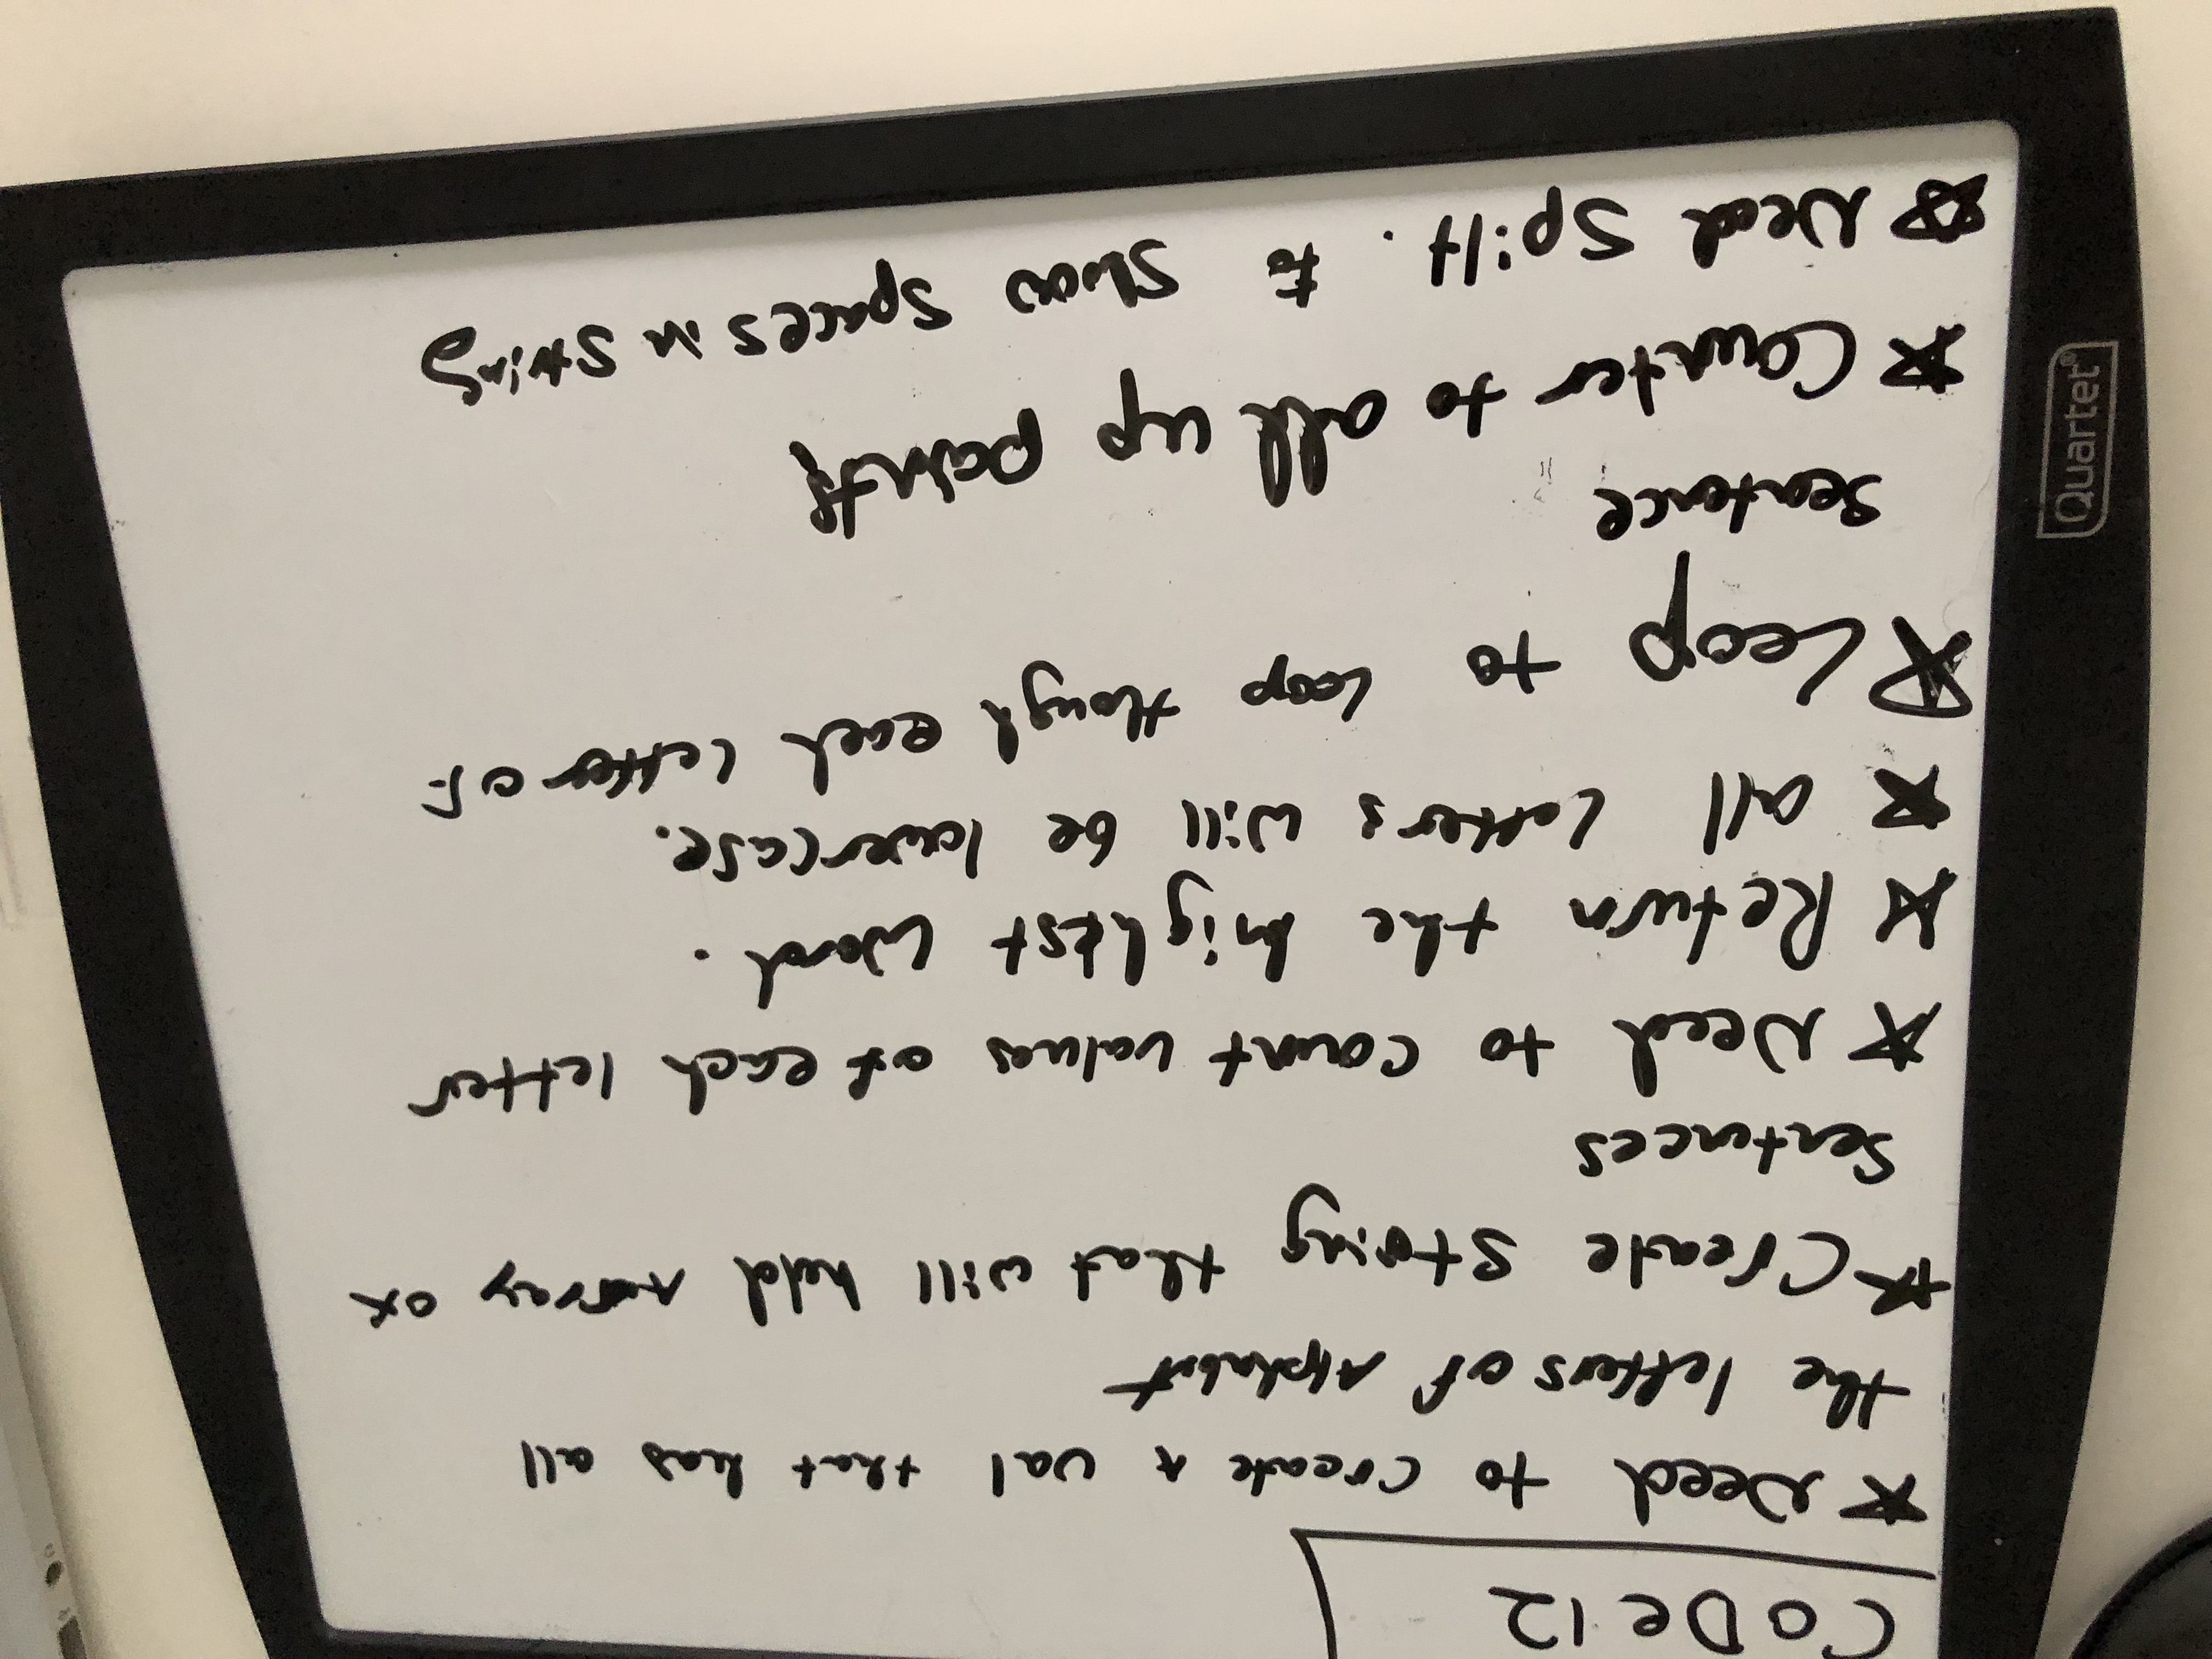 CODE 12
* Need to create A val that has all
the letters of Alphabet
* Create String that will hold Array of
Sentences
* Need to count values of each letter
* Return the highest word.
* all letters will be lowercase.
* Loop to loop though each letter of
sentence
* Counter to all up
* Need Spilt. to Show Spaces in String
Quartet®